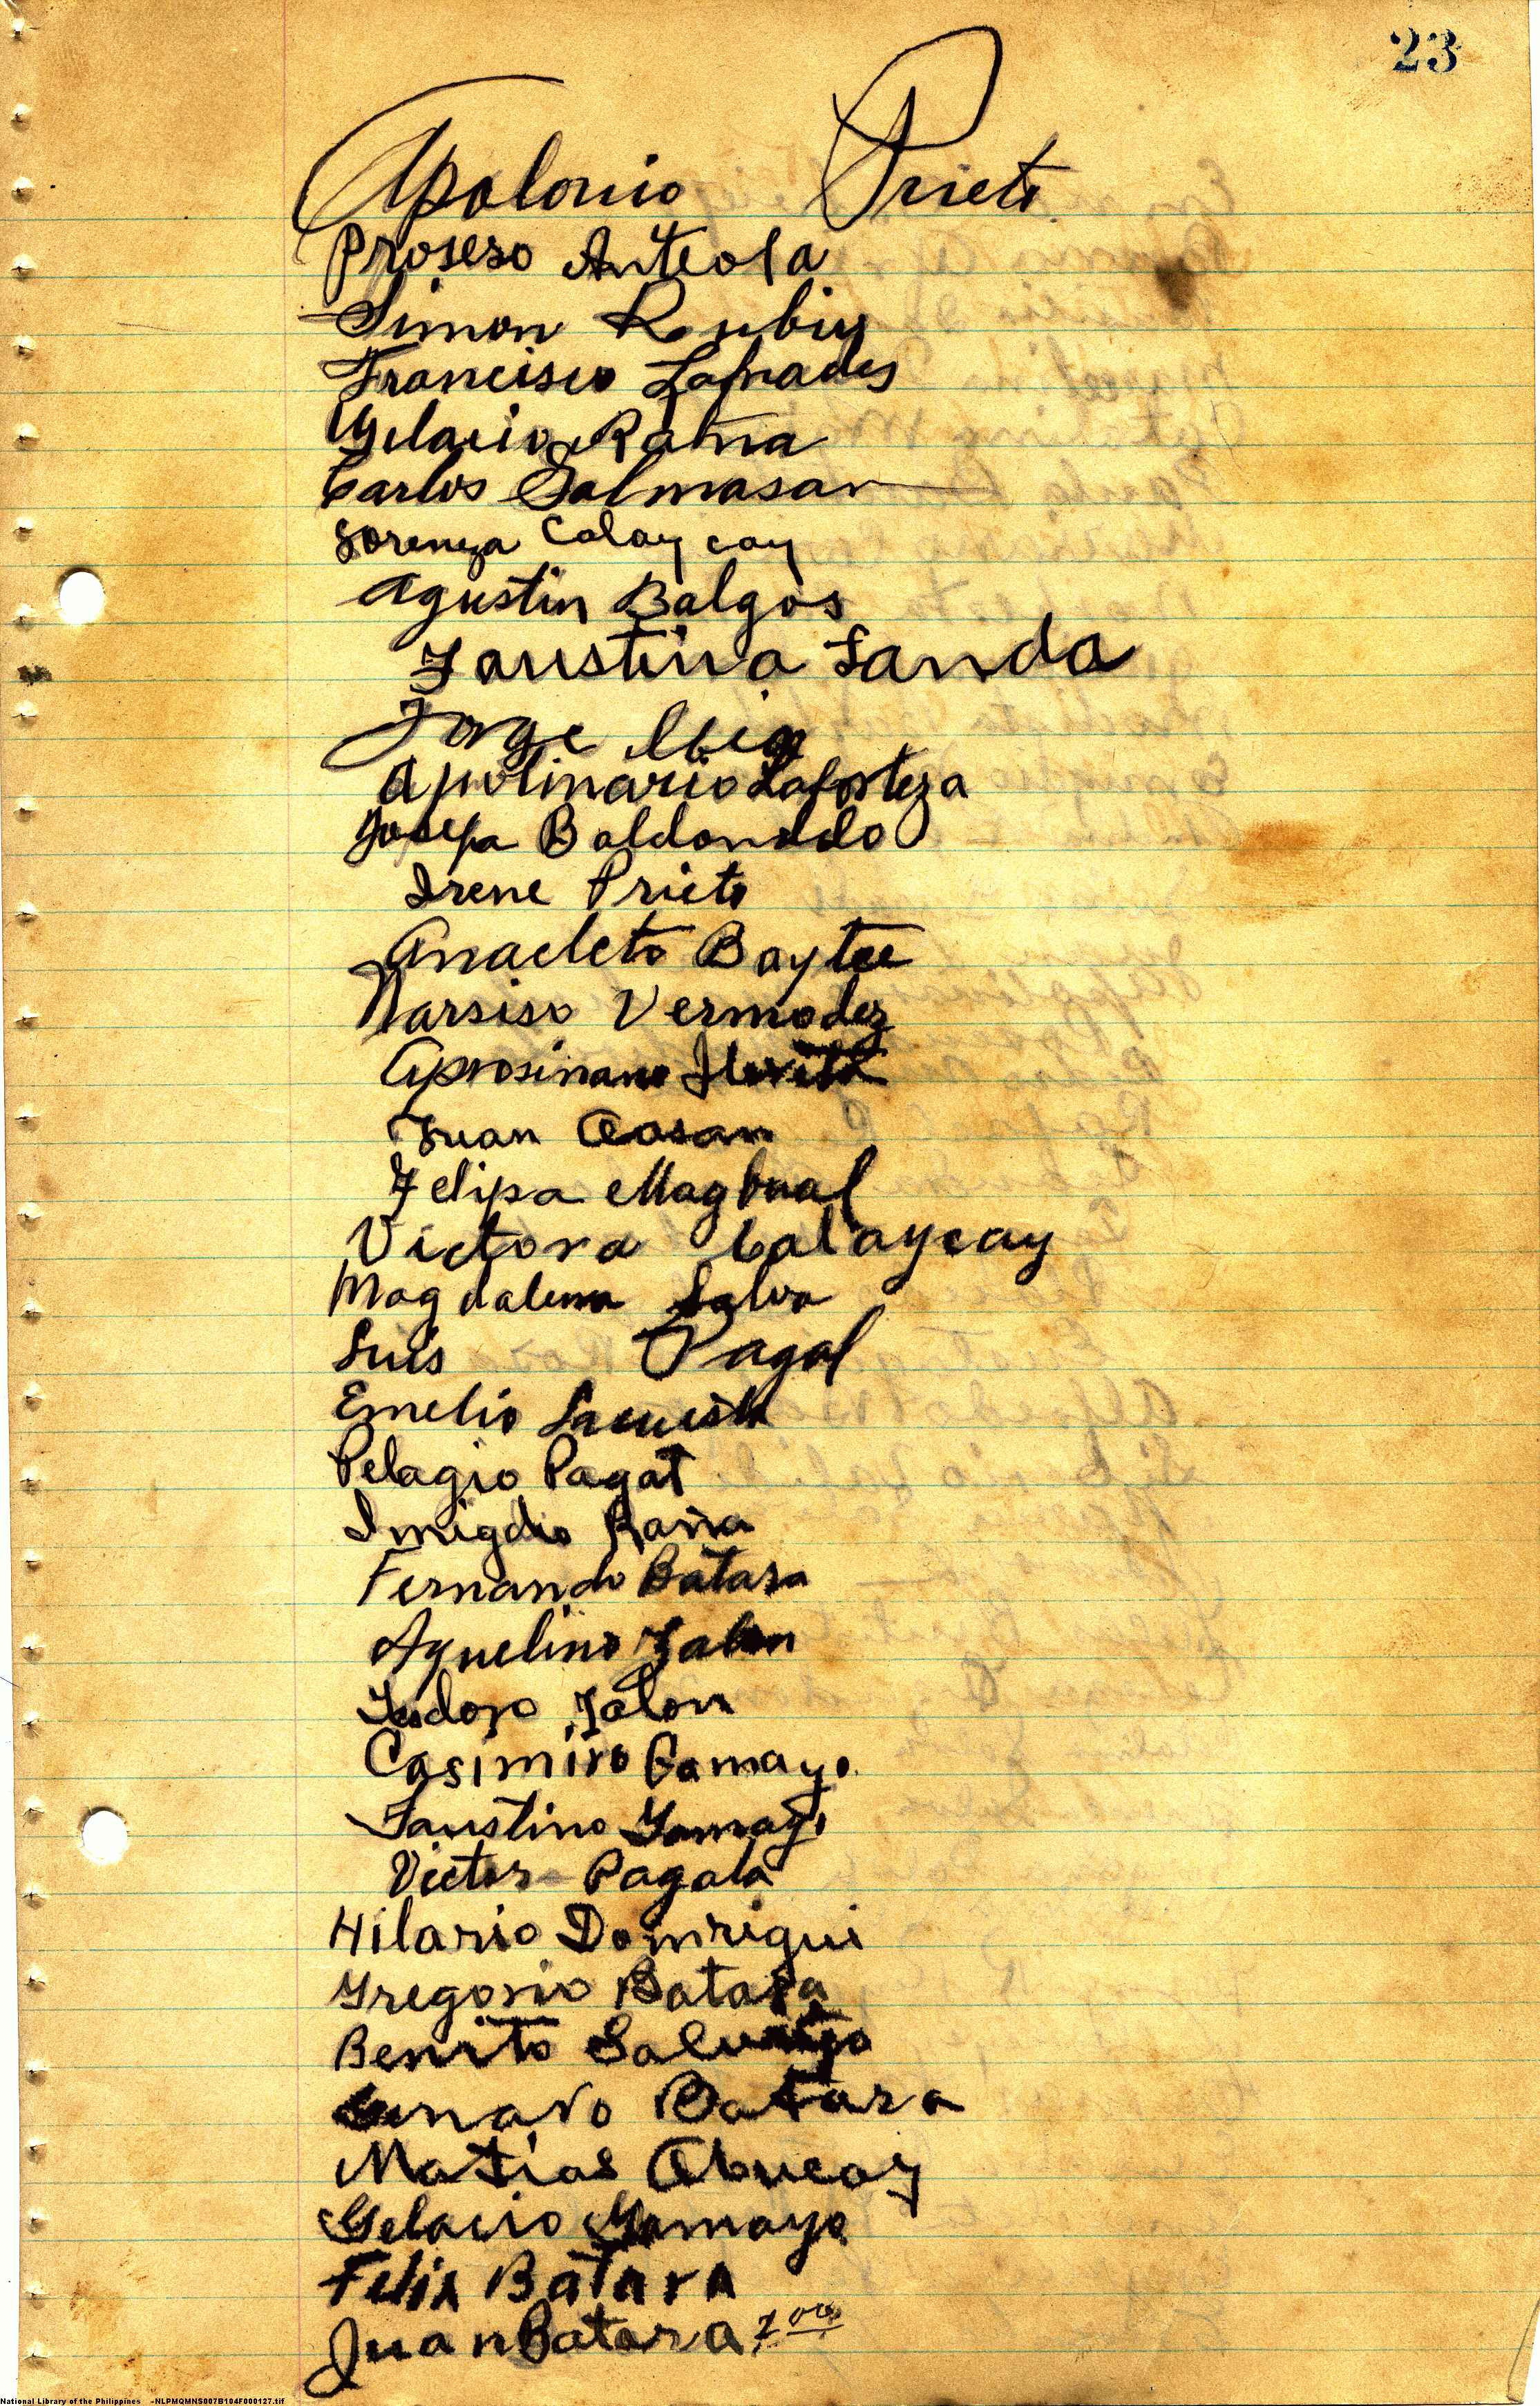 23
Apolonio Prieto
Proseso Anteola
Simon Rubiy
Francisco Lafrades
Gelacio Rama
Carlos Salmasan
Lorenza Calaycay
Agustin Balgos
Faustina Landa
Jorge
Apolinario Lafosteza
Josefa Baldonado
Irene Prieto
Anacleto Baytec
Narsiso Vermodez
Aprosiniano
Juan Oasan
Felipa Magbual
Victora Calaycay
Magdalena Salva
Luis Pagal
Emelio
Pelagio Pagat
Imigdio
Fernando Batara
Aquelino Jalon
Jalon
Casimiro Gamayo.
Faustino Gamayo
Victor Pagala
Hilario Domrigui
Gregorio Batara
Benito
Genaro Batara
Matias Abucay
Gelacio Gamayo
Felix Batara
Juan Batara 2º
National Library of the Philippines -NLPMQMNS007B104F000127.tif